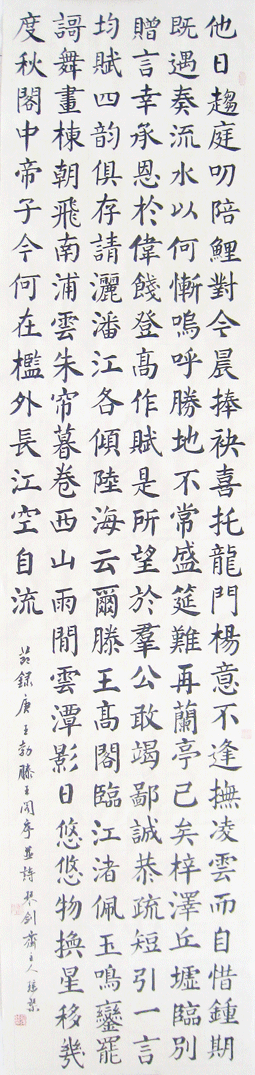 他日趨庭叨陪鯉對今晨捧袂喜托龍門楊意不逢撫凌雲而自惜鍾期
既遇奏流水以何慚嗚呼勝地不常盛筵難再蘭亭已矣梓澤丘墟臨別
贈言幸承恩於偉餞登高作賦是所望於羣公敢竭鄙誠恭疏短引一言
均賦四韵俱存請灑潘江各傾陸海云爾滕王高閣臨江渚佩玉鳴鸞罷
謌舞畫棟朝飛南浦雲朱帘暮卷西山雨閒雲潭影日悠悠物換星移幾
度秋閣中帝子今何在檻外長江空自流
節録唐王勃滕王閣序並詩琴剑齋主人